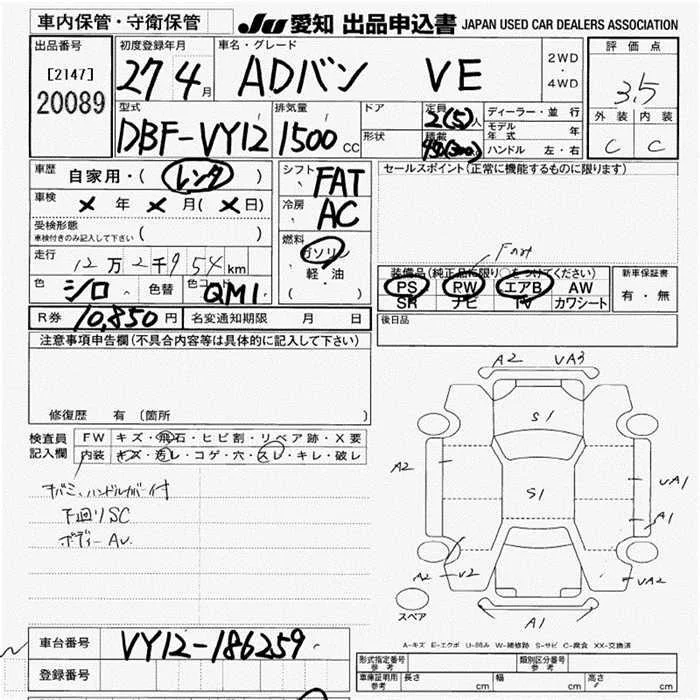 車内保管・守衛保管
JU 愛知 出品申込書 JAPAN USED CAR DEALERS ASSOCIATION
出品番号
[2147]
20089
初度登録年月
27 4月
車名・グレード
ADバン VE
2WD
・
4WD
評価点
3.5
外装 内装
C C
型式
DBF-VY12
排気量
1500 CC
ドア
形状
定員
2(5)人
積載
ディーラー・並行
モデル年式 年
ハンドル 左・右
車歴 自家用・( レンタ )
車検 × 年 × 月( × 日)
受検形態
車検付きのみ記入して下さい ( )
走行 12万2千954km
色 シロ 色替 色コード QM1
シフト FAT
冷房 AC
燃料
ガソリン
軽・油
( )
R券 10,850円 名変通知期限 月 日
セールスポイント(正常に機能するものに限ります)
装備品(純正品に限り○をつけてください)
PS PW エアB AW
SR ナビ TV カワシート
新車保証書
有・無
後日品
注意事項申告欄(不具合内容等は具体的に記入して下さい)
修復歴 有 (箇所
検査員
記入欄
FW キズ・飛石・ヒビ割・リペア跡・X要
内装 キズ・汚レ・コゲ・穴・スレ・キレ・破レ
ハンドルカバー付
下回りSC
ボディーAU
A2 VA3
S1
A2
S1
VA1
A1
A2 V2
VA2
A1
スペア
A-キズ E-エクボ U-凹み W-補修跡 S-サビ C-腐食 XX-交換済
車台番号 VY12-186259
登録番号
形式指定番号
参考
類別区分番号
参考
車庫証明用
参考
長さ cm 幅 cm 高さ cm